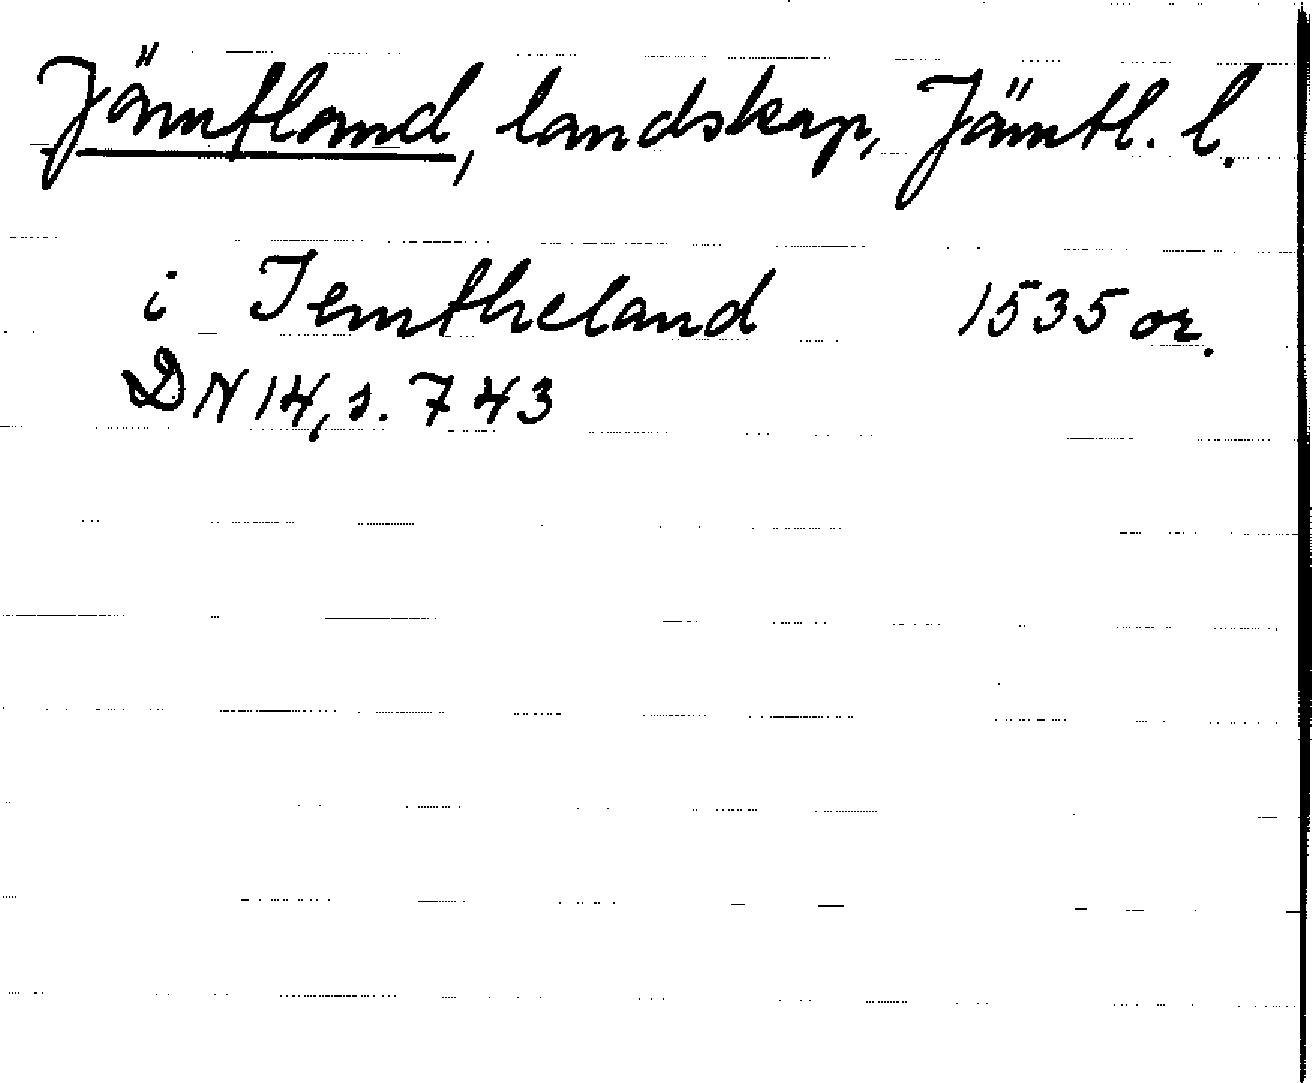 Jämtland, landskap, Jämtl. l.
i Jemtheland 1535 or.
DN 14, s. 743